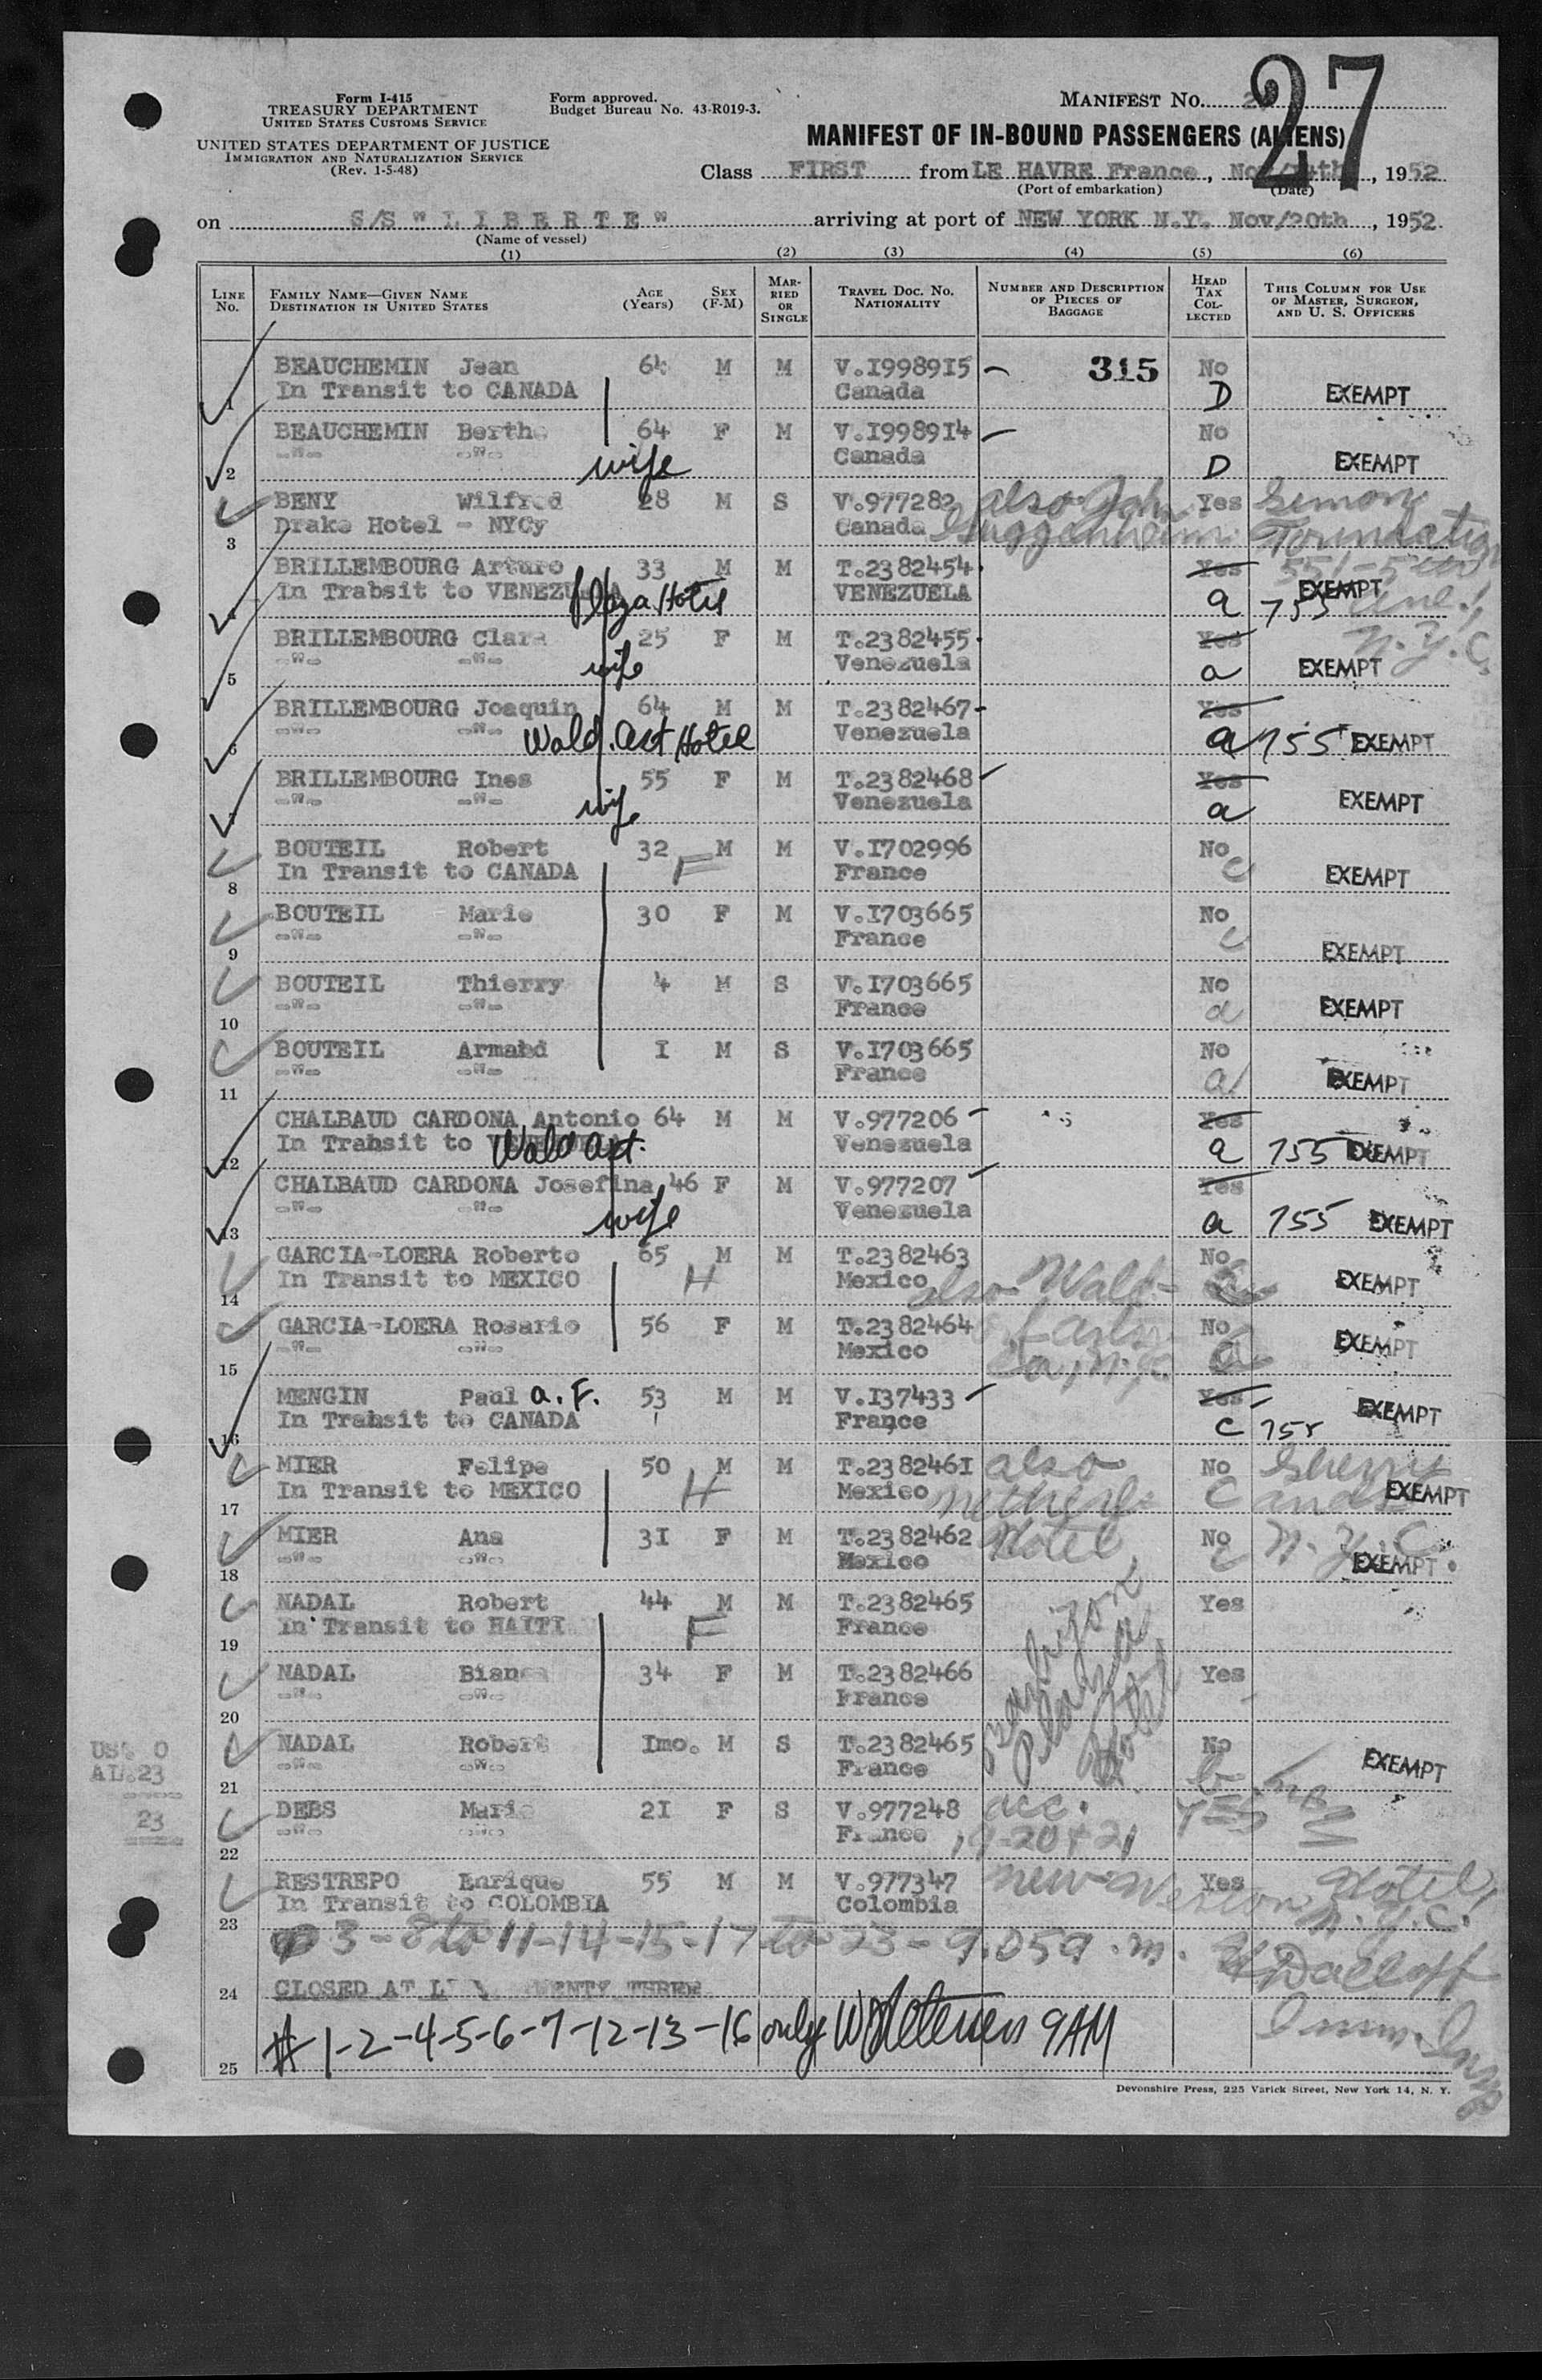 27
Form I-415
TREASURY DEPARTMENT
UNITED STATES CUSTOMS SERVICE
UNITED STATES DEPARTMENT OF JUSTICE
IMMIGRATION AND NATURALIZATION SERVICE
(Rev. 1-5-48)
Form approved.
Budget Bureau No. 43-R019-3.
MANIFEST NO.
MANIFEST OF IN-BOUND PASSENGERS (ALIENS)
Class FIRST from LE HAVRE France, Nov/14th, 1952
(Port of embarkation) (Date)
on S/S "LIBERTE" arriving at port of NEW YORK N.Y. Nov/20th, 1952
(Name of vessel)
(1) (2) (3) (4) (5) (6)
LINE No. FAMILY NAME—GIVEN NAME DESTINATION IN UNITED STATES AGE (Years) SEX (F-M) MARRIED OR SINGLE TRAVEL DOC. NO. NATIONALITY NUMBER AND DESCRIPTION OF PIECES OF BAGGAGE HEAD TAX COLLECTED THIS COLUMN FOR USE OF MASTER, SURGEON, AND U. S. OFFICERS
BEAUCHEMIN Jean 64 M M V.I998915 — 315 No
1 In Transit to CANADA Canada D EXEMPT
BEAUCHEMIN Berthe 64 F M V.I998914 — No
2 -"- -"- wife Canada D EXEMPT
BENY Wilfred 28 M S V.977282 also John Yes Simon
3 Drake Hotel - NYCy Canada Guggenheim Foundation
551-5th
BRILLEMBOURG Arturo 33 M M T.2382454 Yes
In Trabsit to VENEZUELA Plaza Hotel VENEZUELA a 755 EXEMPT Ave.,
N.Y.C.
BRILLEMBOURG Clara 25 F M T.2382455 Yes
5 -"- -"- wife Venezuela a EXEMPT
BRILLEMBOURG Joaquin 64 M M T.2382467 Yes
6 -"- -"- Wald. Ast Hotel Venezuela a 755 EXEMPT
BRILLEMBOURG Ines 55 F M T.2382468 Yes
-"- -"- wife Venezuela a EXEMPT
BOUTEIL Robert 32 M M V.I702996 No
8 In Transit to CANADA F France c EXEMPT
BOUTEIL Marie 30 F M V.I703665 No
9 -"- -"- France c EXEMPT
BOUTEIL Thierry 4 M S V.I703665 No
10 -"- -"- France a EXEMPT
BOUTEIL Armabd I M S V.I703665 No
11 -"- -"- France a EXEMPT
CHALBAUD CARDONA Antonio 64 M M V.977206 — Yes
12 In Transit to Wald Ast. Venezuela a 755 EXEMPT
CHALBAUD CARDONA Josefina 46 F M V.977207 Yes
13 -"- -"- wife Venezuela a 755 EXEMPT
GARCIA-LOERA Roberto 65 M M T.2382463 No
14 In Transit to MEXICO H Mexico also Wald- EXEMPT
GARCIA-LOERA Rosario 56 F M T.2382464 No
15 -"- -"- Mexico N.Y.C. EXEMPT
MENGIN Paul A. F. 53 M M V.I37433 — Yes
16 In Transit to CANADA France c 755 EXEMPT
MIER Felipe 50 M M T.238246I also No Sherry
17 In Transit to MEXICO H Mexico Netherl- c ands EXEMPT
MIER Ana 3I F M T.2382462 Hotel, No N.Y.C.
18 -"- -"- Mexico c EXEMPT
NADAL Robert 44 M M T.2382465 Yes
19 In Transit to HAITI F France
NADAL Bianca 34 F M T.2382466 Yes
20 -"- -"- France
Plaza Hotel
NADAL Robert Imo. M S T.2382465 No
21 -"- -"- France b EXEMPT
DEBS Marie 2I F S V.977248 acc. YES
22 -"- -"- France 19-20+21
RESTREPO Enrique 55 M M V.977347 New Weston Yes Hotel,
23 In Transit to COLOMBIA Colombia N.Y.C.
US. 0
AL.23
23
3-8 to 11-14-15-17 to 23-9.05 a.m.
24 CLOSED AT LINE TWENTY THREE
Imm. Insp
25 # 1-2-4-5-6-7-12-13-16 only 9AM
Devonshire Press, 225 Varick Street, New York 14, N. Y.